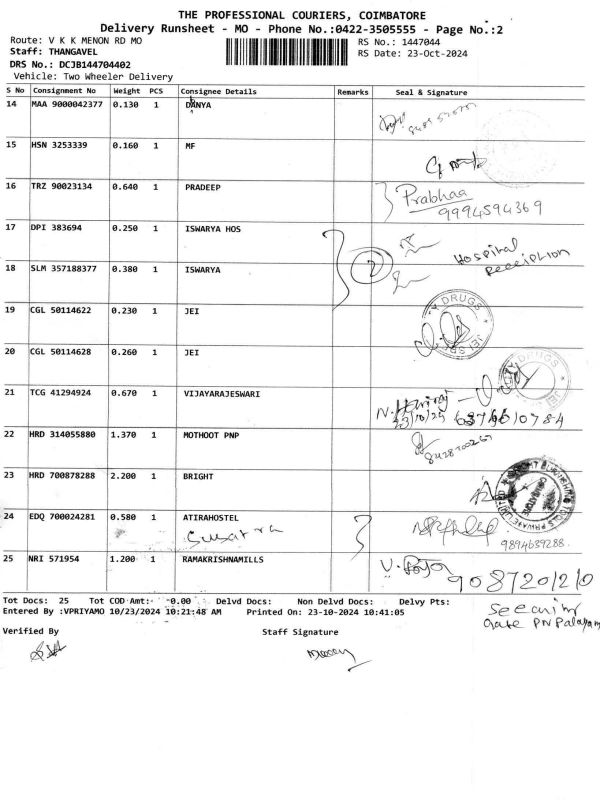 THE PROFESSIONAL COURIERS, COIMBATORE
Delivery Runsheet - MO - Phone No.:0422-3505555 - Page No.:2
Route: V K K MENON RD MO
RS No.: 1447044
Staff: THANGAVEL
RS Date: 23-Oct-2024
DRS No.: DCJB144704402
Vehicle: Two Wheeler Delivery
S No Consignment No Weight PCS Consignee Details Remarks Seal & Signature
14 MAA 9000042377 0.130 1 DANYA
15 HSN 3253339 0.160 1 MF
16 TRZ 90023134 0.640 1 PRADEEP
Prabhaa
9994594369
17 DPI 383694 0.250 1 ISWARYA HOS
Hospital
Reception
2
18 SLM 357188377 0.380 1 ISWARYA
19 CGL 50114622 0.230 1 JEI
DRUGS
20 CGL 50114628 0.260 1 JEI
DRUGS
JEI
21 TCG 41294924 0.670 1 VIJAYARAJESWARI
22 HRD 314055880 1.370 1 MOTHOOT PNP
23 HRD 700878288 2.200 1 BRIGHT
24 EDQ 700024281 0.580 1 ATIRAHOSTEL
9894639288
25 NRI 571954 1.200 1 RAMAKRISHNAMILLS
9087201210
Tot Docs: 25 Tot COD Amt: 0.00 Delvd Docs: Non Delvd Docs: Delvy Pts:
Entered By :VPRIYAMO 10/23/2024 10:21:48 AM Printed On: 23-10-2024 10:41:05
Gate PN Palayam
Verified By Staff Signature